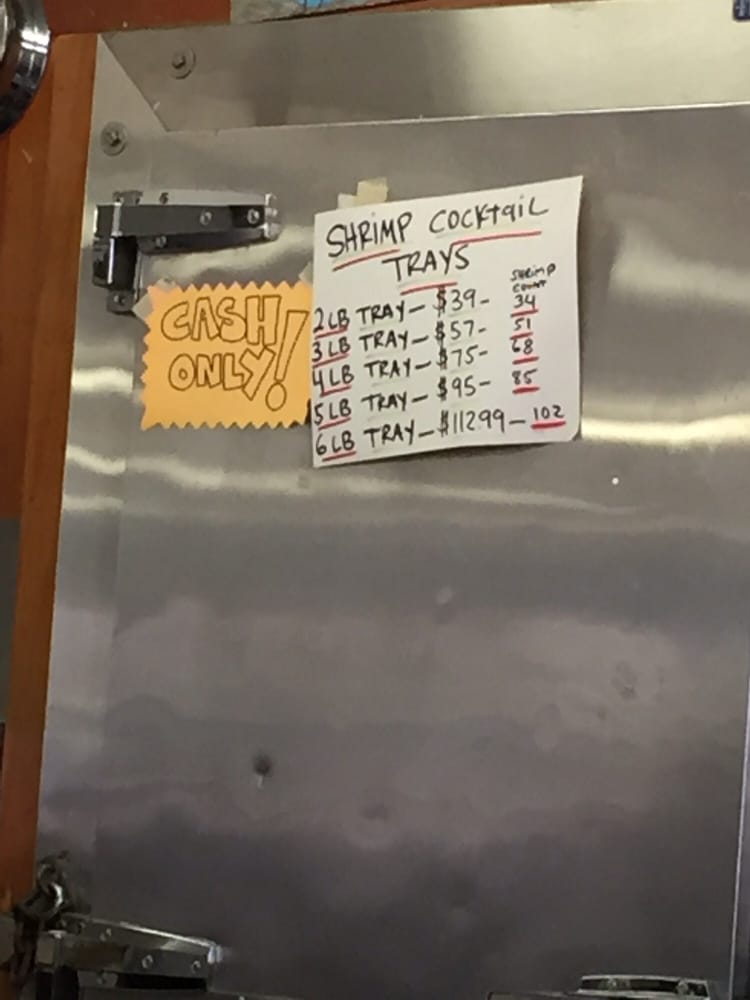 SHRIMP COCKTAIL
TRAYS
SHRIMP
COUNT
2 LB TRAY - $39 - 34
3 LB TRAY - $57 - 51
4 LB TRAY - $75 - 68
5 LB TRAY - $95 - 85
6 LB TRAY - $112.99 - 102
CASH
ONLY!